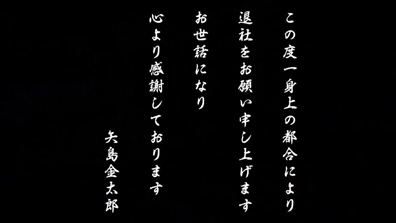 この度一身上の都合により
退社をお願い申し上げます
お世話になり
心より感謝しております
矢島金太郎